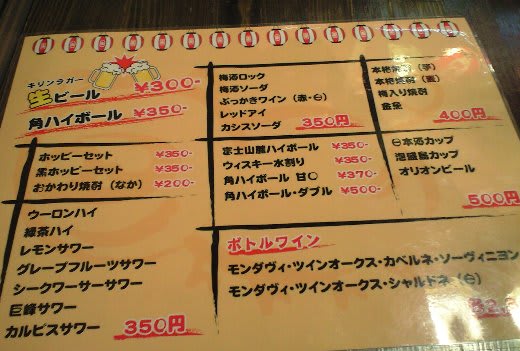 キリンラガー
生ビール ¥300-
角ハイボール ¥350-
ホッピーセット ¥350-
黒ホッピーセット ¥350-
おかわり焼酎（なか） ¥200-
ウーロンハイ
緑茶ハイ
レモンサワー
グレープフルーツサワー
シークワーサーサワー
巨峰サワー
カルピスサワー 350円
梅酒ロック
梅酒ソーダ
ぶっかきワイン（赤・㊀）
レッドアイ
カシスソーダ 350円
富士山麓ハイボール ¥350-
ウィスキー水割り ¥350-
角ハイボール 甘〇 ¥370-
角ハイボール・ダブル ¥500-
本格焼酎（芋）
本格焼酎（麦）
梅入り焼酎
金魚 400円
㊀本酒カップ
泡盛島カップ
オリオンビール
500円
ボトルワイン
モンダヴィ・ツインオークス・カベルネ・ソーヴィニヨン
モンダヴィ・ツインオークス・シャルドネ（㊀）